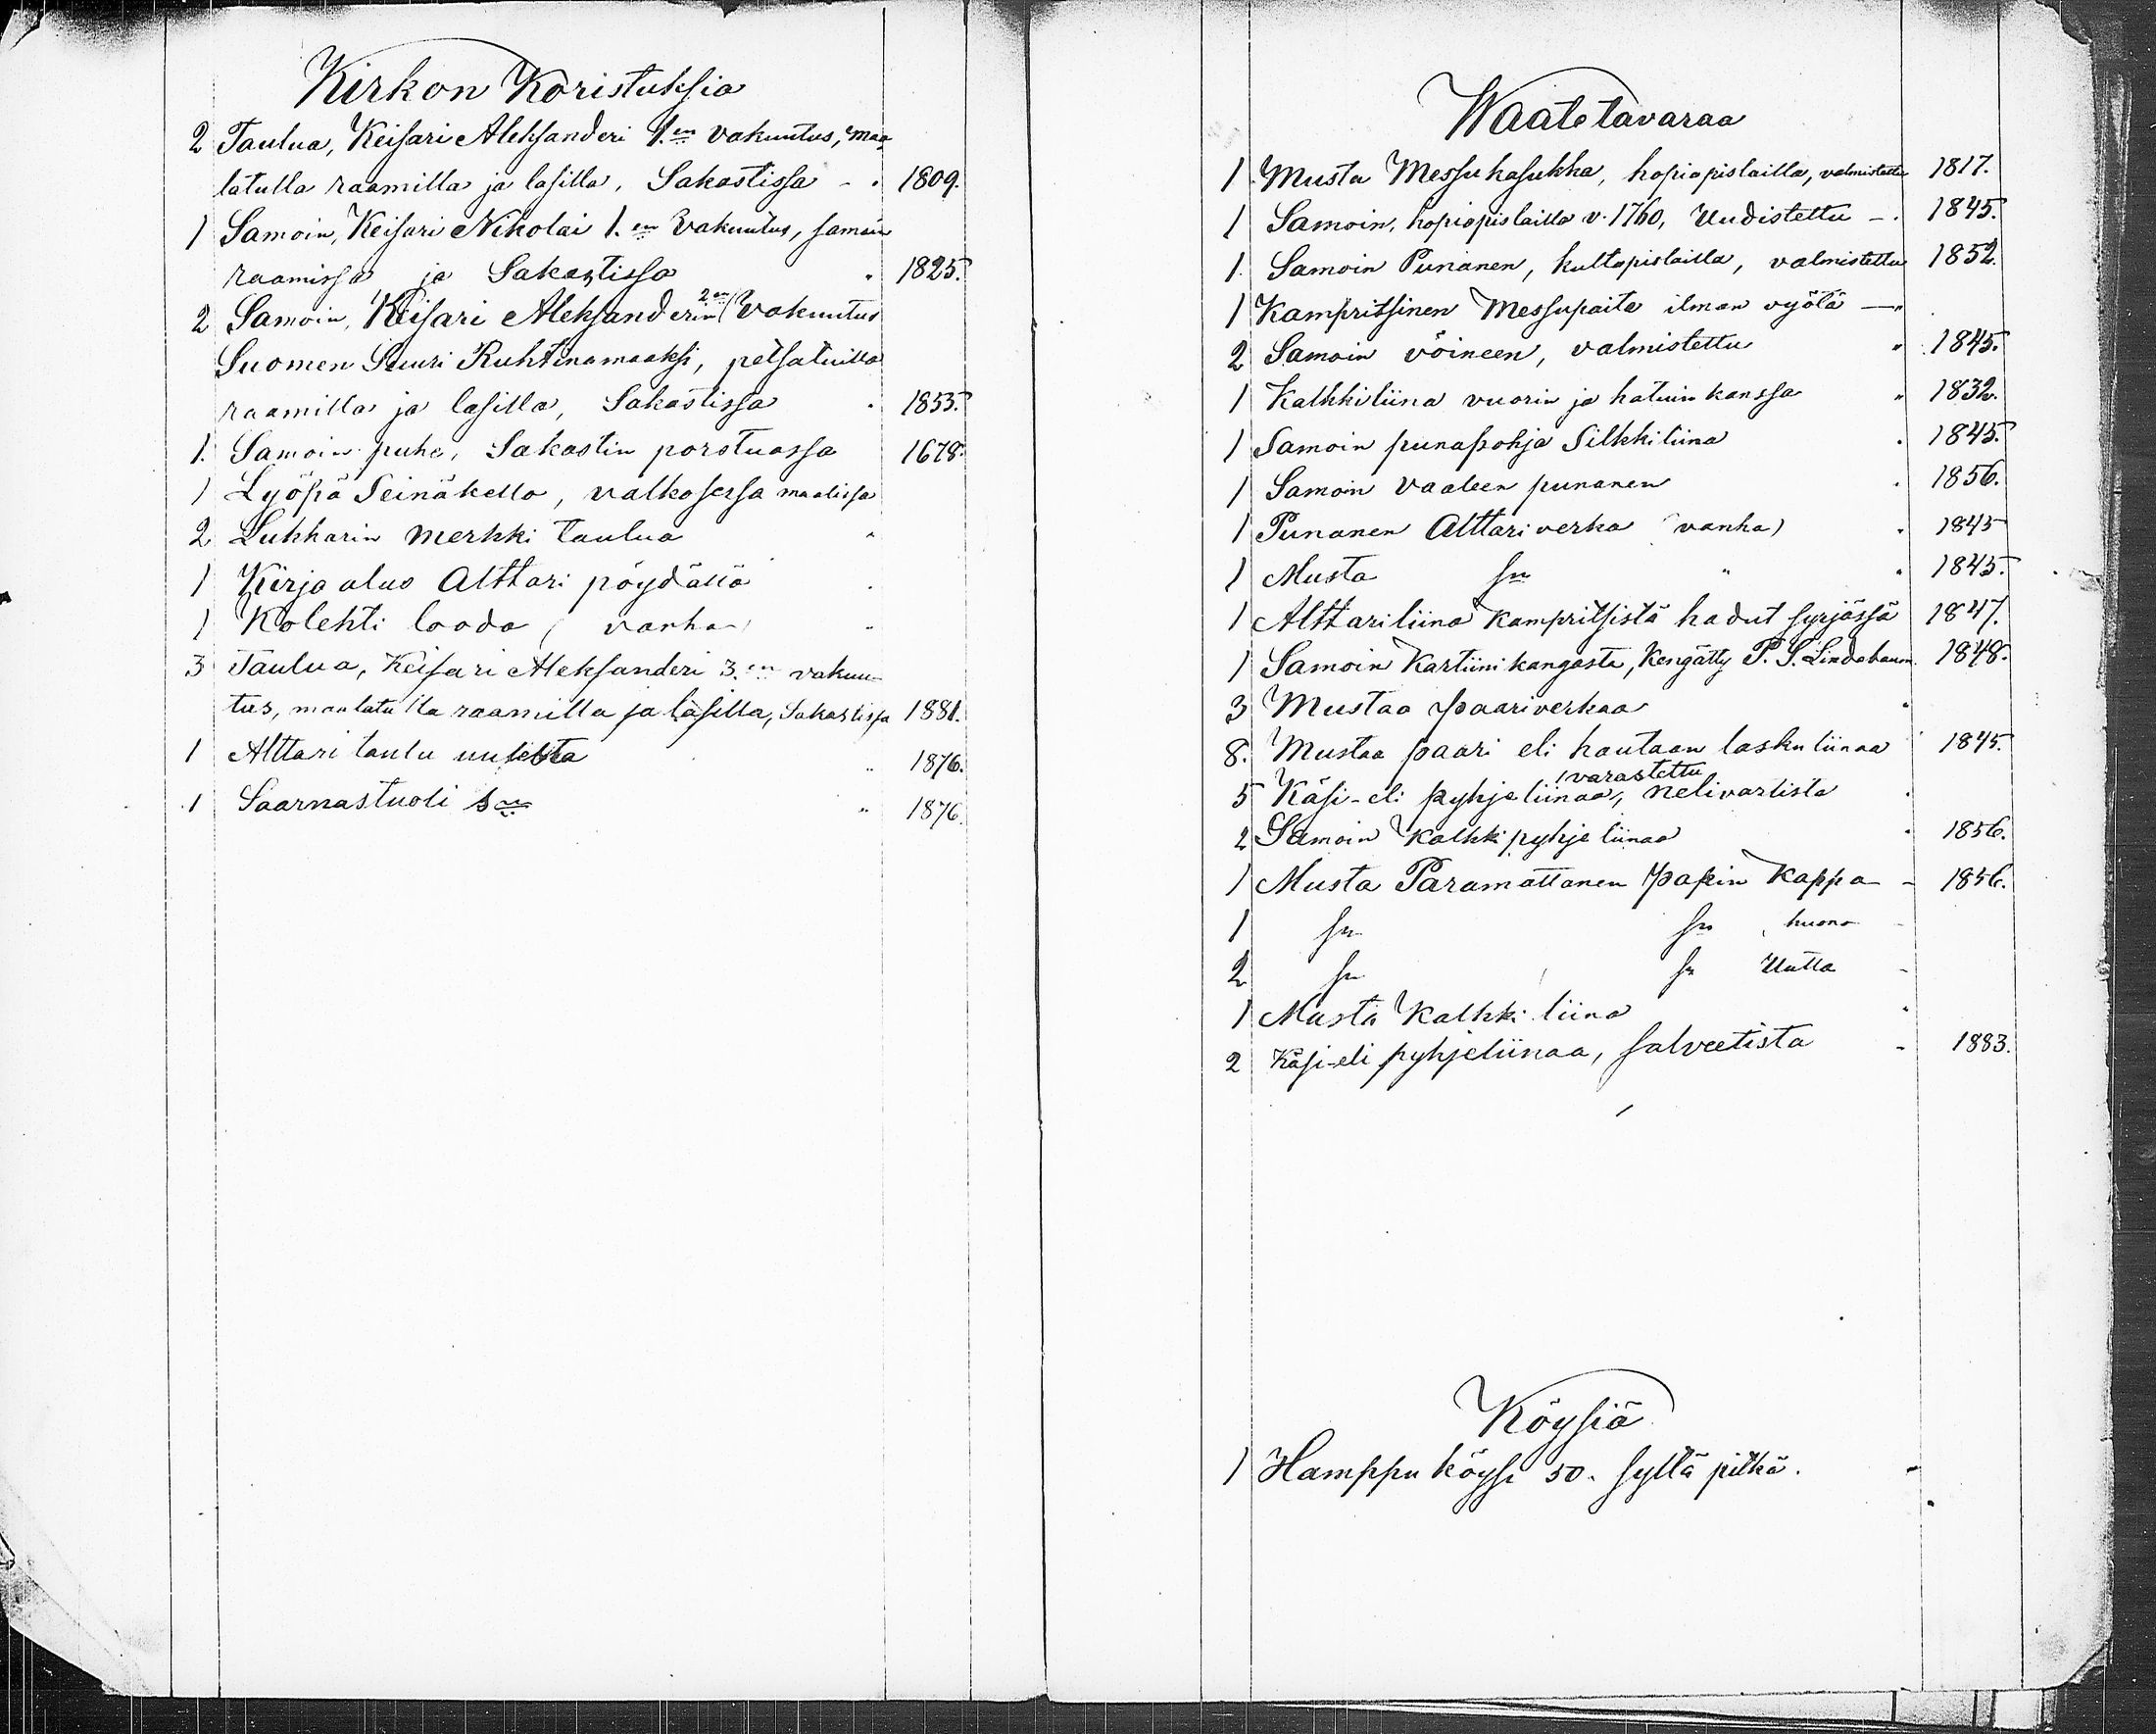 Kirkon Koristuksia
2 Taulua, Keisari Aleksanderi 1.en vakuutus, maa-
latulla raamilla ja lasilla, Sakastissa - . 1809.
1 Samoin, Keisari Nikolai 1.en Vakuutus, samain
raamissa ja Sakastissa . 1825.
2 Samoin, Keisari Aleksanderin 2en Vakuutus
Suomen Suuri Ruhtinamaaksi, petsatuilla
raamilla ja lasilla, Sakastissa . 1855.
1. Samoin puhe, Sakastin porstuassa 1678.
1 Lyöpä Seinäkello, valkosessa maalissa
2 Lukkarin merkki taulua "
1 Kirja alus Alttari pöydällä .
1 Kolehti looda (vanha) "
3 Taulua, Keisari Aleksanderi 3.en vakuu-
tus, maalatulla raamilla ja lasilla, Sakastissa 1881.
1 Alttari taulu uutelta " 1876.
1 Saarnastuoli sn " 1876.
Waatetavaraa
1 Musta Messuhasukka, hopiapislailla, valmistettu 1817.
1 Samoin, hopiapislailla v. 1760, Uudistettu - . 1845.
1. Samoin Punanen, kultapislailla, valmistettu 1852.
1 Kampritsinen Messupaita ilman vyötä - "
2 Samoin vöineen, valmistettu " 1845.
1 Kalkkiliina vuorin ja hatuin kanssa " 1832.
1 Samoin punapohja Silkkiliina . 1845.
1 Samoin vaaleen punanen . 1856.
1 Punanen Alttariverka (vanha) . 1845
1 Musta sn " . 1845.
1 Alttariliina Kampritsistä hadut syrjässä 1847.
1 Samoin Kartiinikangasta, Kengätty P. S. Lindebaum 1848.
3 Mustaa paariverkaa .
8. Mustaa paari eli hautaan laskuliinaa " 1845.
varastettu
5 Käsi-eli pyhjeliinaa, nelivartista .
2 Samoin Kalkki pyhje liinaa . 1856.
1 Musta Paramattanen papin Kappa - 1856.
1 sn sn, huono -
2 sn sn Uutta -
1 Musta Kalkki liina .
2 Käsi-eli pyhjeliinaa, salveetista - 1883.
Köysiä
1 Hamppu köysi 50. syltä pitkä.